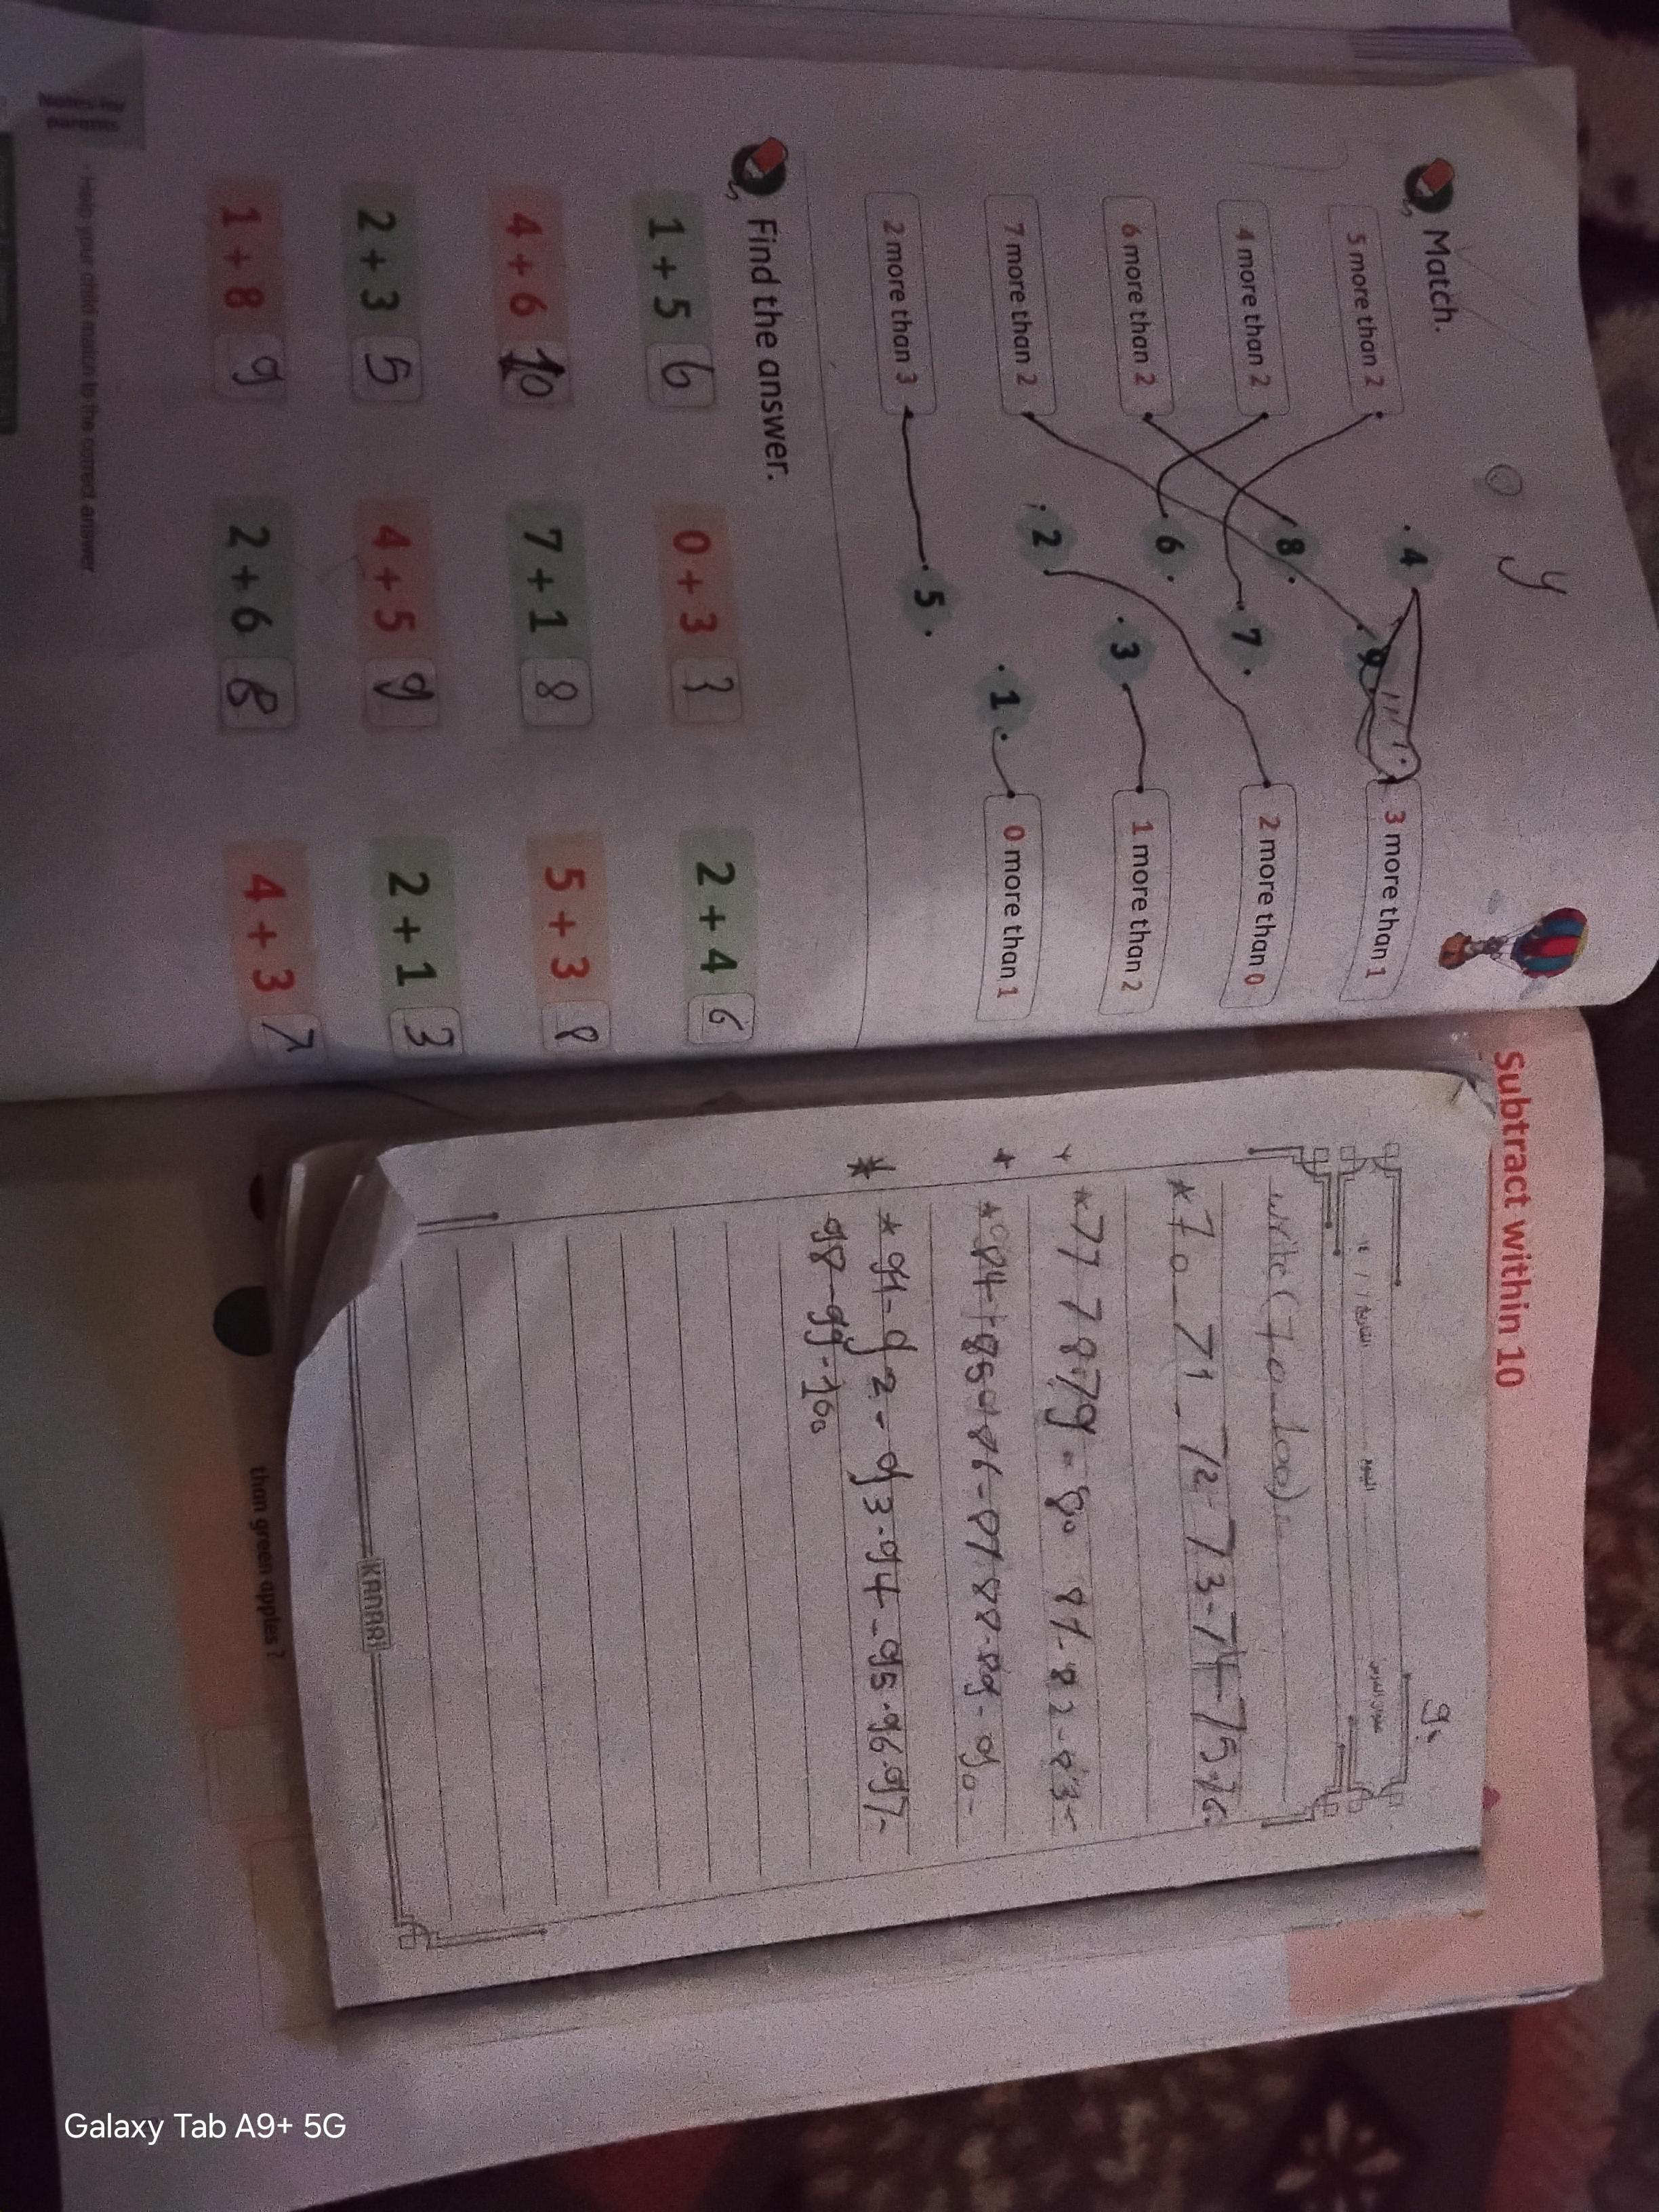 Match.
5 more than 2
4 more than 2
6 more than 2
7 more than 2
2 more than 3
4
8
9
6
7
2
3
5
1
3 more than 1
2 more than 0
1 more than 2
0 more than 1
Find the answer.
1 + 5 6
0 + 3 3
2 + 4 6
4 + 6 10
7 + 1 8
5 + 3 8
2 + 3 5
4 + 5 9
2 + 1 3
1 + 8 9
2 + 6 8
4 + 3 7
Notes for parents
Help your child match to the correct answer.
Subtract within 10
التاريخ / / ١٤ اليوم عنوان الدرس
write (70_100)
* 70_71_72-73-74-75-76-
* 77 78-79-80 81-82-83-
* 84-85-86-87 88-89-90-
* 91-92-93-94-95-96-97-
98-99-100
KANARI
than green apples?
Galaxy Tab A9+ 5G